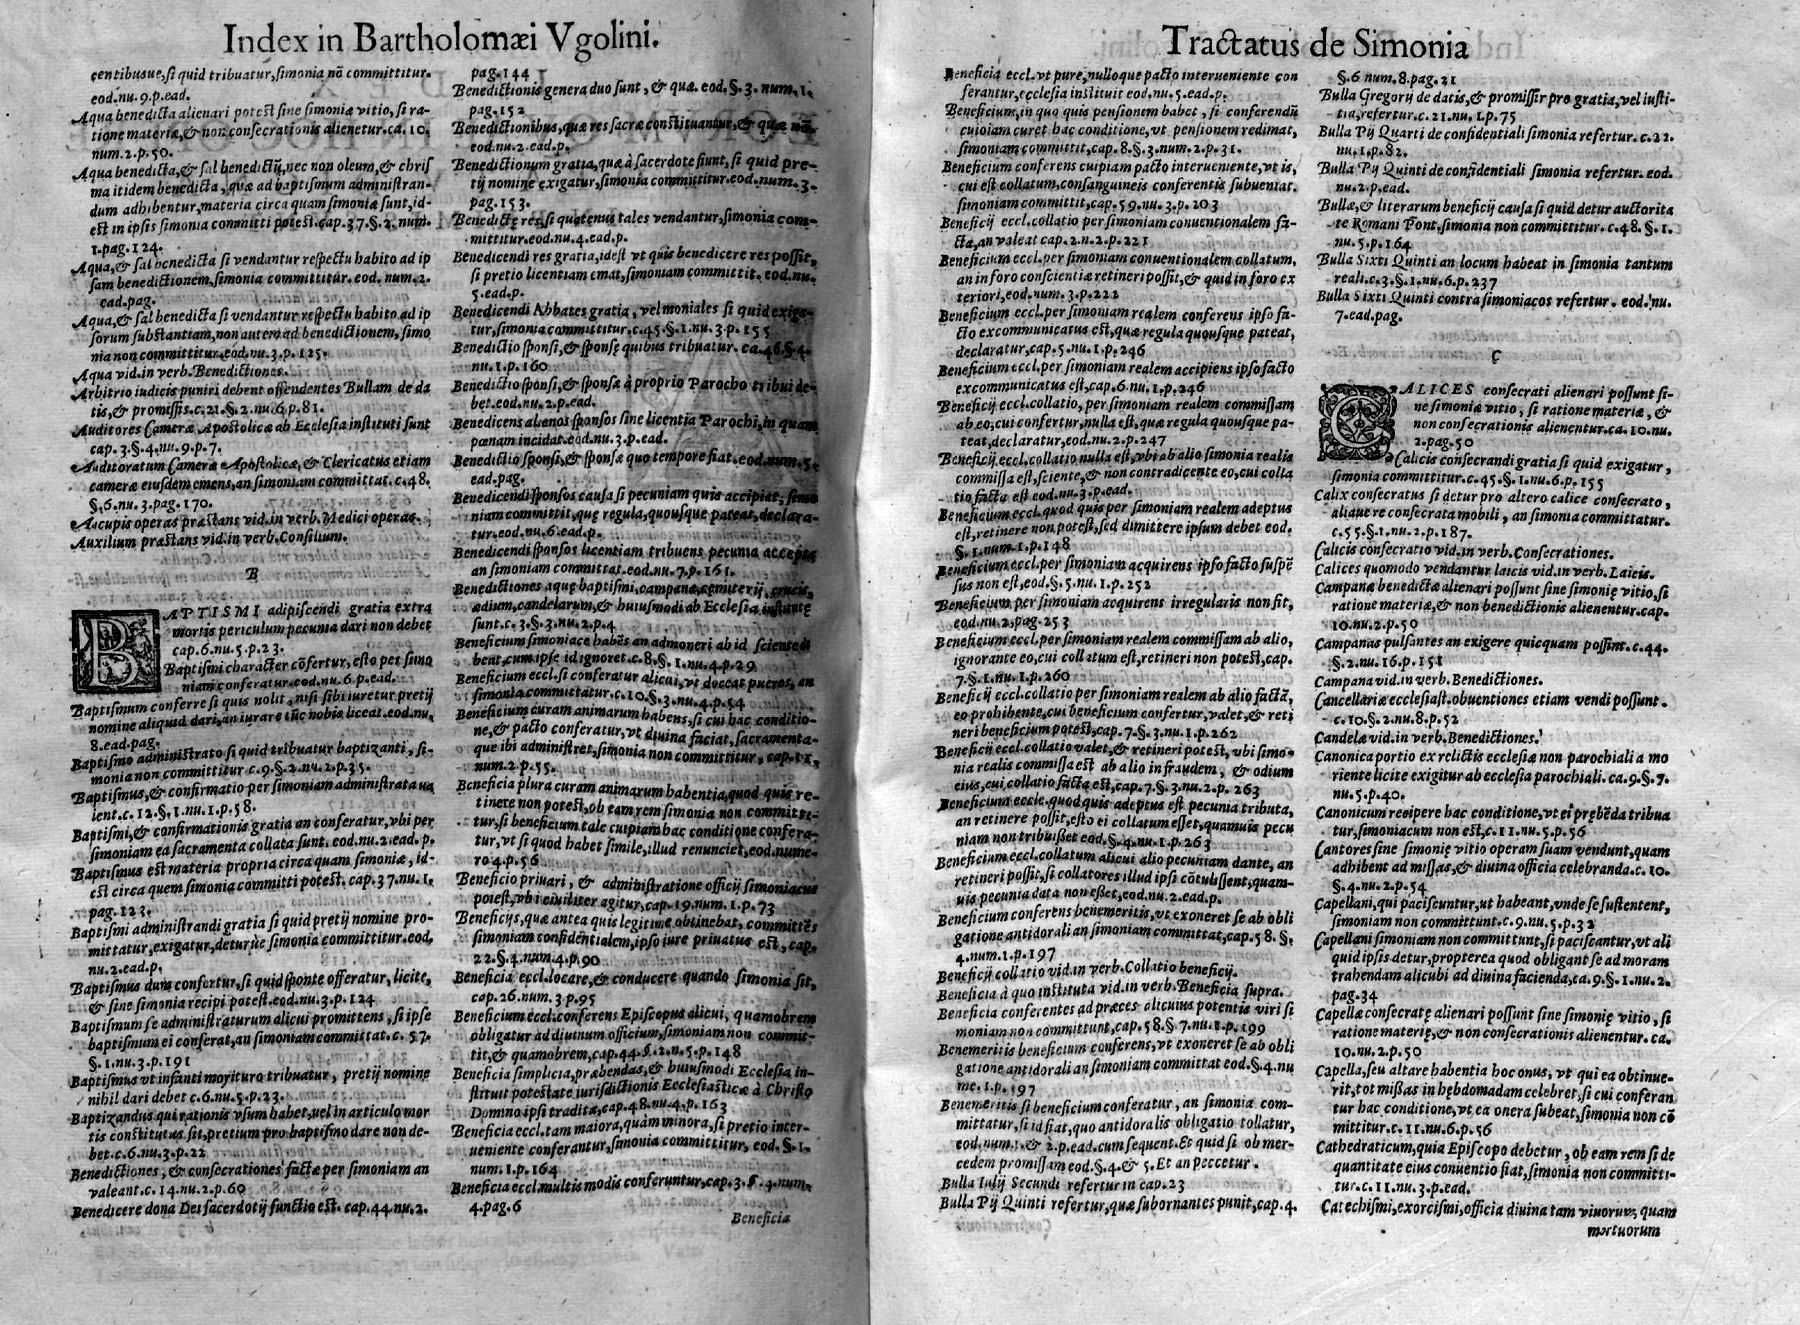 Index in Bartholomæi Vgolini.
centibusue, si quid tribuatur, simonia nõ committitur.
eod.nu.9.p.ead.
Aqua benedicta alienari potest sine simoniæ vitio, si ra-
tione materiæ, & non consecrationis alienetur.ca.10.
num.2.p.50.
Aqua benedicta, & sal benedictũ, nec non oleum, & chris
ma itidem benedicta, quæ ad baptismum administran-
dum adhibentur, materia circa quam simoniæ sunt, id-
est in ipsis simonia committi potest.cap.37.§.2.num.
1.pag.124.
Aqua, & sal benedicta si vendantur respectu habito ad ip
sam benedictionem, simonia committitur. eod. num.2.
ead.pag.
Aqua, & sal benedicta si vendantur respectu habito ad ip
sorum substantiam, non autem ad benedictionem, simo
nia non committitur.eod.nu.3.p.125.
Aqua vid.in verb.Benedictiones.
Arbitrio iudicis puniri debent offendentes Bullam de da
tis, & promissis.c.21.§.2.nu.6.p.81.
Auditores Cameræ Apostolicæ ab Ecclesia instituti sunt
cap.3.§.4.nu.9.p.7.
Auditoratum Cameræ Apostolicæ, & Clericatus etiam
cameræ eiusdem emens, an simoniam committat. c.48.
§.6.nu.3.pag.170.
Aucupis operas præstans vid.in verb.Medici operas.
Auxilium præstans vid.in verb.Consilium.
B
BAPTISMI adipiscendi gratia extra
mortis periculum pecunia dari non debet
cap.6.nu.5.p.23.
Baptismi character cõfertur, esto per simo
niam conferatur.eod.nu.6.p.ead.
Baptismum conferre si quis nolit, nisi sibi iuretur pretij
nomine aliquid dari, an iurare tũc nobis liceat.eod.nu.
8.ead.pag.
Baptismo administrato si quid tribuatur baptizanti, si-
monia non committitur c.9.§.2.nu.2.p.35.
Baptismus, & confirmatio per simoniam administrata ua
lent.c.12.§.1.nu.1.p.58.
Baptismi, & confirmationis gratia an conferatur, vbi per
simoniam ea sacramenta collata sunt. eod.nu.2.ead. p.
Baptismus est materia propria circa quam simoniæ, id-
est circa quem simonia committi potest. cap.37.nu.1.
pag.123.
Baptismi administrandi gratia si quid pretij nomine pro-
mittatur, exigatur, detur ùe simonia committitur.eod.
nu.2.ead.p.
Baptismus dum confertur, si quid sponte offeratur, licite,
& sine simonia recipi potest.eod.nu.3.p.124
Baptismum se administraturum alicui promittens, si ipse
baptismum ei conferat, an simoniam committat.c. 57.
§.1.nu.3.p.191
Baptismus vt infanti morituro tribuatur, pretij nomine
nihil dari debet c.6.nu.5.p.23.
Baptizandus qui rationis vsum habet, uel in articulo mor
tis constitutus sit, pretium pro baptismo dare non de-
bet.c.6.nu.3.p.22
Benedictiones, & consecrationes factæ per simoniam an
valeant.c.14.nu.2.p.60
Benedicere dona Dei sacerdotij functio est. cap.44.nu.2.
pag.144
Benedictionis genera duo sunt, & quæ. eod. §.3. num.1.
pag.152
Benedictionibus, quæ res sacræ constituantur, & quæ nõ.
eod.nu.2.ead.p.
Benedictionum gratia, quæ à sacerdote fiunt, si quid pre-
tij nomine exigatur, simonia committitur.eod.num.3.
pag.153.
Benedictę res, si quatenus tales vendantur, simonia com-
mittitur.eod.nu.4.ead.p.
Benedicendi res gratia, idest vt quis benedicere res possit,
si pretio licentiam emat, simoniam committit. eod.nu.
5.ead.p.
Benedicendi Abbates gratia, vel moniales si quid exiga-
tur, simonia committitur.c.45.§.1.nu.3.p.155
Benedictio sponsi, & sponsę quibus tribuatur. ca.46.§.4.
nu.1.p.160
Benedictio sponsi, & sponsæ à proprio Parocho tribui de-
bet.eod.nu.2.p.ead.
Benedicens alienos sponsos sine licentia Parochi, in quam
pœnam incidat.eod.nu.3.p.ead.
Benedictio sponsi, & sponsæ quo tempore fiat.eod.num.5.
ead.pag.
Benedicendi sponsos causa si pecuniam quis accipiat, simo
niam committit, quę regula, quousque pateat, declara-
tur.eod.nu.6.ead.p.
Benedicendi sponsos licentiam tribuens pecunia accepta
an simoniam committat.eod.nu.7.p.161.
Benedictiones aquę baptismi, campanæ, cęmiterij, crucis,
ædium, candelarum, & huiusmodi ab Ecclesia institutę
sunt.c.3.§.3.nu.2.p.4
Beneficium simoniace habẽs an admoneri ab id sciente di
beat, cum ipse id ignoret.c.8.§.1.nu.4.p.29
Beneficium eccl.si conferatur alicui, vt doceat pueros, an
simonia committatur.c.10.§.3.nu.4.p.54
Beneficium curam animarum habens, si cui hac conditio-
ne, & pacto conferatur, vt diuina faciat, sacramenta-
que ibi administret, simonia non committitur, cap.11.
num.2.p.55.
Beneficia plura curam animarum habentia, quod quis re-
tinere non potest, ob eam rem simonia non committi-
tur, si beneficium tale cuipiam hac conditione confera-
tur, vt si quod habet simile, illud renunciet, eod.nume-
ro 4.p.56
Beneficio priuari, & administratione officij simoniacus
potest, vbi ciuiliter agitur, cap.19.num.1.p.73
Beneficijs, quæ antea quis legitime obtinebat, committẽs
simoniam confidẽtialem, ipso iure priuatus est, cap.
22.§.4.num.4.p.90
Beneficia eccl.locare, & conducere quando simonia sit,
cap.26.num.3.p.95
Beneficium eccl.conferens Episcopus alicui, quamobrem
obligatur ad diuinum officium, simoniam non commit-
tit, & quamobrem, cap.44.§.2.n.5.p.148
Beneficia simplicia, præbendas, & huiusmodi Ecclesia in-
stituit potestate iurisdictionis Ecclesiasticæ à Christo
Domino ipsi tradita, cap.48.nu.4.p.163
Beneficia eccl.tam maiora, quàm minora, si pretio inter-
ueniente conferantur, simonia committitur, eod. §.1.
num.1.p.164
Beneficia eccl.multis modis conferuntur, cap.3.§.4.num.
4.pag.6
Beneficia
Tractatus de Simonia
Beneficia eccl.vt pure, nulloque pacto interueniente con
ferantur, ecclesia instituit eod.nu.5.ead.p.
Beneficium, in quo quis pensionem habet, si conferendũ
cuipiam curet hac conditione, vt pensionem redimat,
simoniam committit, cap.8.§.3.num.2.p.31.
Beneficium conferens cuipiam pacto interueniente, vt is,
cui est collatum, consanguineis conferentis subueniat.
simoniam committit, cap.59.nu.3.p.203
Beneficij eccl.collatio per simoniam conuentionalem fa-
cta, an valeat cap.2.n.2.p.221
Beneficium eccl.per simoniam conuentionalem collatum,
an in foro conscientiæ retineri possit, & quid in foro ex
teriori, eod.num.3.p.222
Beneficium eccl.per simoniam realem conferens ipso fa-
cto excommunicatus est, quæ regula quousque pateat,
declaratur, cap.5.nu.1.p.246
Beneficium eccl.per simoniam realem accipiens ipso facto
excommunicatus est, cap.6.nu.1.p.246
Beneficij eccl.collatio, per simoniam realem commissam
ab eo, cui confertur, nulla est, quæ regula quousque pa-
teat, declaratur, eod.nu.2.p.247
Beneficij eccl.collatio nulla est, vbi ab alio simonia realis
commissa est, sciente, & non contradicente eo, cui colla
tio facta est eod.nu.3.p.ead.
Beneficium eccl.quod quis per simoniam realem adeptus
est, retinere non potest, sed dimittere ipsum debet eod.
§.1.num.1.p.148
Beneficium eccl.per simoniam acquirens ipso facto suspẽ
sus non est, eod.§.5.nu.1.p.252
Beneficium per simoniam acquirens irregularis non fit,
eod.nu.2.pag.253
Beneficium eccl.per simoniam realem commissam ab alio,
ignorante eo, cui collatum est, retineri non potest, cap.
7.§.1.nu.1.p.260
Beneficij eccl.collatio per simoniam realem ab alio factã,
eo prohibente, cui beneficium confertur, valet, & reti
neri beneficium potest, cap.7.§.3.nu.1.p.262
Beneficij eccl.collatio valet, & retineri potest, vbi simo-
nia realis commissa est ab alio in fraudem, & odium
eius, cui collatio facta est, cap.7.§.3.nu.2.p.263
Beneficium eccle.quod quis adeptus est pecunia tributa,
an retinere possit, esto ei collatum esset, quamuis pecu
niam non tribuisset eod.§.4.nu.1.p.263
Beneficium eccl.collatum alicui alio pecuniam dante, an
retineri possit, si collatores illud ipsi cõtulissent, quam-
uis pecunia data non esset, eod.nu.2.ead.p.
Beneficium conferens benemeritis, vt exoneret se ab obli
gatione antidorali an simoniam committat, cap.58.§.
4.num.1.p.197
Beneficij collatio vid.in verb.Collatio beneficij.
Beneficia à quo instituta vid.in verb.Beneficia supra.
Beneficia conferentes ad præces alicuius potentis viri si
moniam non committunt, cap.58.§.7.nu.1.p.199
Benemeritis beneficium conferens, vt exoneret se ab obli
gatione antidorali an simoniam committat eod.§.4.nu
me.1.p.197
Benemeritis si beneficium conferatur, an simonia com-
mittatur, si id fiat, quo antidoralis obligatio tollatur,
eod.num.1.& 2.p.ead.cum sequent.Et quid si ob mer-
cedem promissam eod.§.4.& 5.Et an peccetur.
Bulla Iulij Secundi refertur in cap.23
Bulla Pij Quinti refertur, quæ subornantes punit, cap.4.
§.6 num.8.pag.21
Bulla Gregorij de datis, & promissis pro gratia, vel iusti-
tia, refertur.c.21.nu.1.p.75
Bulla Pij Quarti de confidentiali simonia refertur.c.22.
nu.1.p.82.
Bulla Pij Quinti de confidentiali simonia refertur. eod.
nu.2.p.ead.
Bullæ, & literarum beneficij causa si quid detur auctorita
te Romani Pont.simonia non committitur. c.48. §.1.
nu.5.p.164
Bulla Sixti Quinti an locum habeat in simonia tantum
reali.c.3.§.1.nu.6.p.237
Bulla Sixti Quinti contra simoniacos refertur. eod.nu.
7.ead.pag.
C
CALICES consecrati alienari possunt si-
ne simoniæ vitio, si ratione materiæ, &
non consecrationis alienentur.ca.10.nu.
2.pag.50
Calicis consecrandi gratia si quid exigatur,
simonia committitur.c.45.§.1.nu.6.p.155
Calix consecratus si detur pro altero calice consecrato,
aliaue re consecrata mobili, an simonia committatur.
c.55.§.1.nu.2.p.187.
Calicis consecratio vid.in verb.Consecrationes.
Calices quomodo vendantur laicis vid.in verb.Laicis.
Campanæ benedictæ alienari possunt sine simoniæ vitio, si
ratione materiæ, & non benedictionis alienentur.cap.
10.nu.2.p.50
Campanas pulsantes an exigere quicquam possint.c.44.
§.2.nu.16.p.151
Campana vid.in verb.Benedictiones.
Cancellariæ ecclesiast.obuentiones etiam vendi possunt.
c.10.§.2.nu.8.p.52
Candelæ vid.in verb.Benedictiones.
Canonica portio ex relictis ecclesiæ non parochiali a mo
riente licite exigitur ab ecclesia parochiali.ca.9.§.7.
nu.5.p.40.
Canonicum recipere hac conditione, vt ei prębẽda tribua
tur, simoniacum non est, c.11.nu.5.p.56
Cantores sine simonię vitio operam suam vendunt, quam
adhibent ad missas, & diuina officia celebranda.c.10.
§.4.nu.2.p.54
Capellani, qui paciscuntur, vt habeant, vnde se sustentent,
simoniam non committunt.c.9.nu.5.p.32
Capellani simoniam non committunt, si paciscantur, vt ali
quid ipsis detur, propterea quod obligant se ad moram
trahendam alicubi ad diuina facienda, ca.9.§.1.nu.2.
pag.34
Capellæ consecratę alienari possunt sine simonię vitio, si
ratione materię, & non consecrationis alienentur. ca.
10.nu.2.p.50
Capella, seu altare habentia hoc onus, vt qui ea obtinue-
rit, tot missas in hebdomadam celebret, si cui conferan
tur hac conditione, vt ea onera subeat, simonia non cõ
mittitur.c.11.nu.6.p.56
Cathedraticum, quia Episcopo debetur, ob eam rem si de
quantitate eius conuentio fiat, simonia non committi-
tur.c.11.nu.3.p.ead.
Catechismi, exorcismi, officia diuina tam viuorum, quam
mortuorum